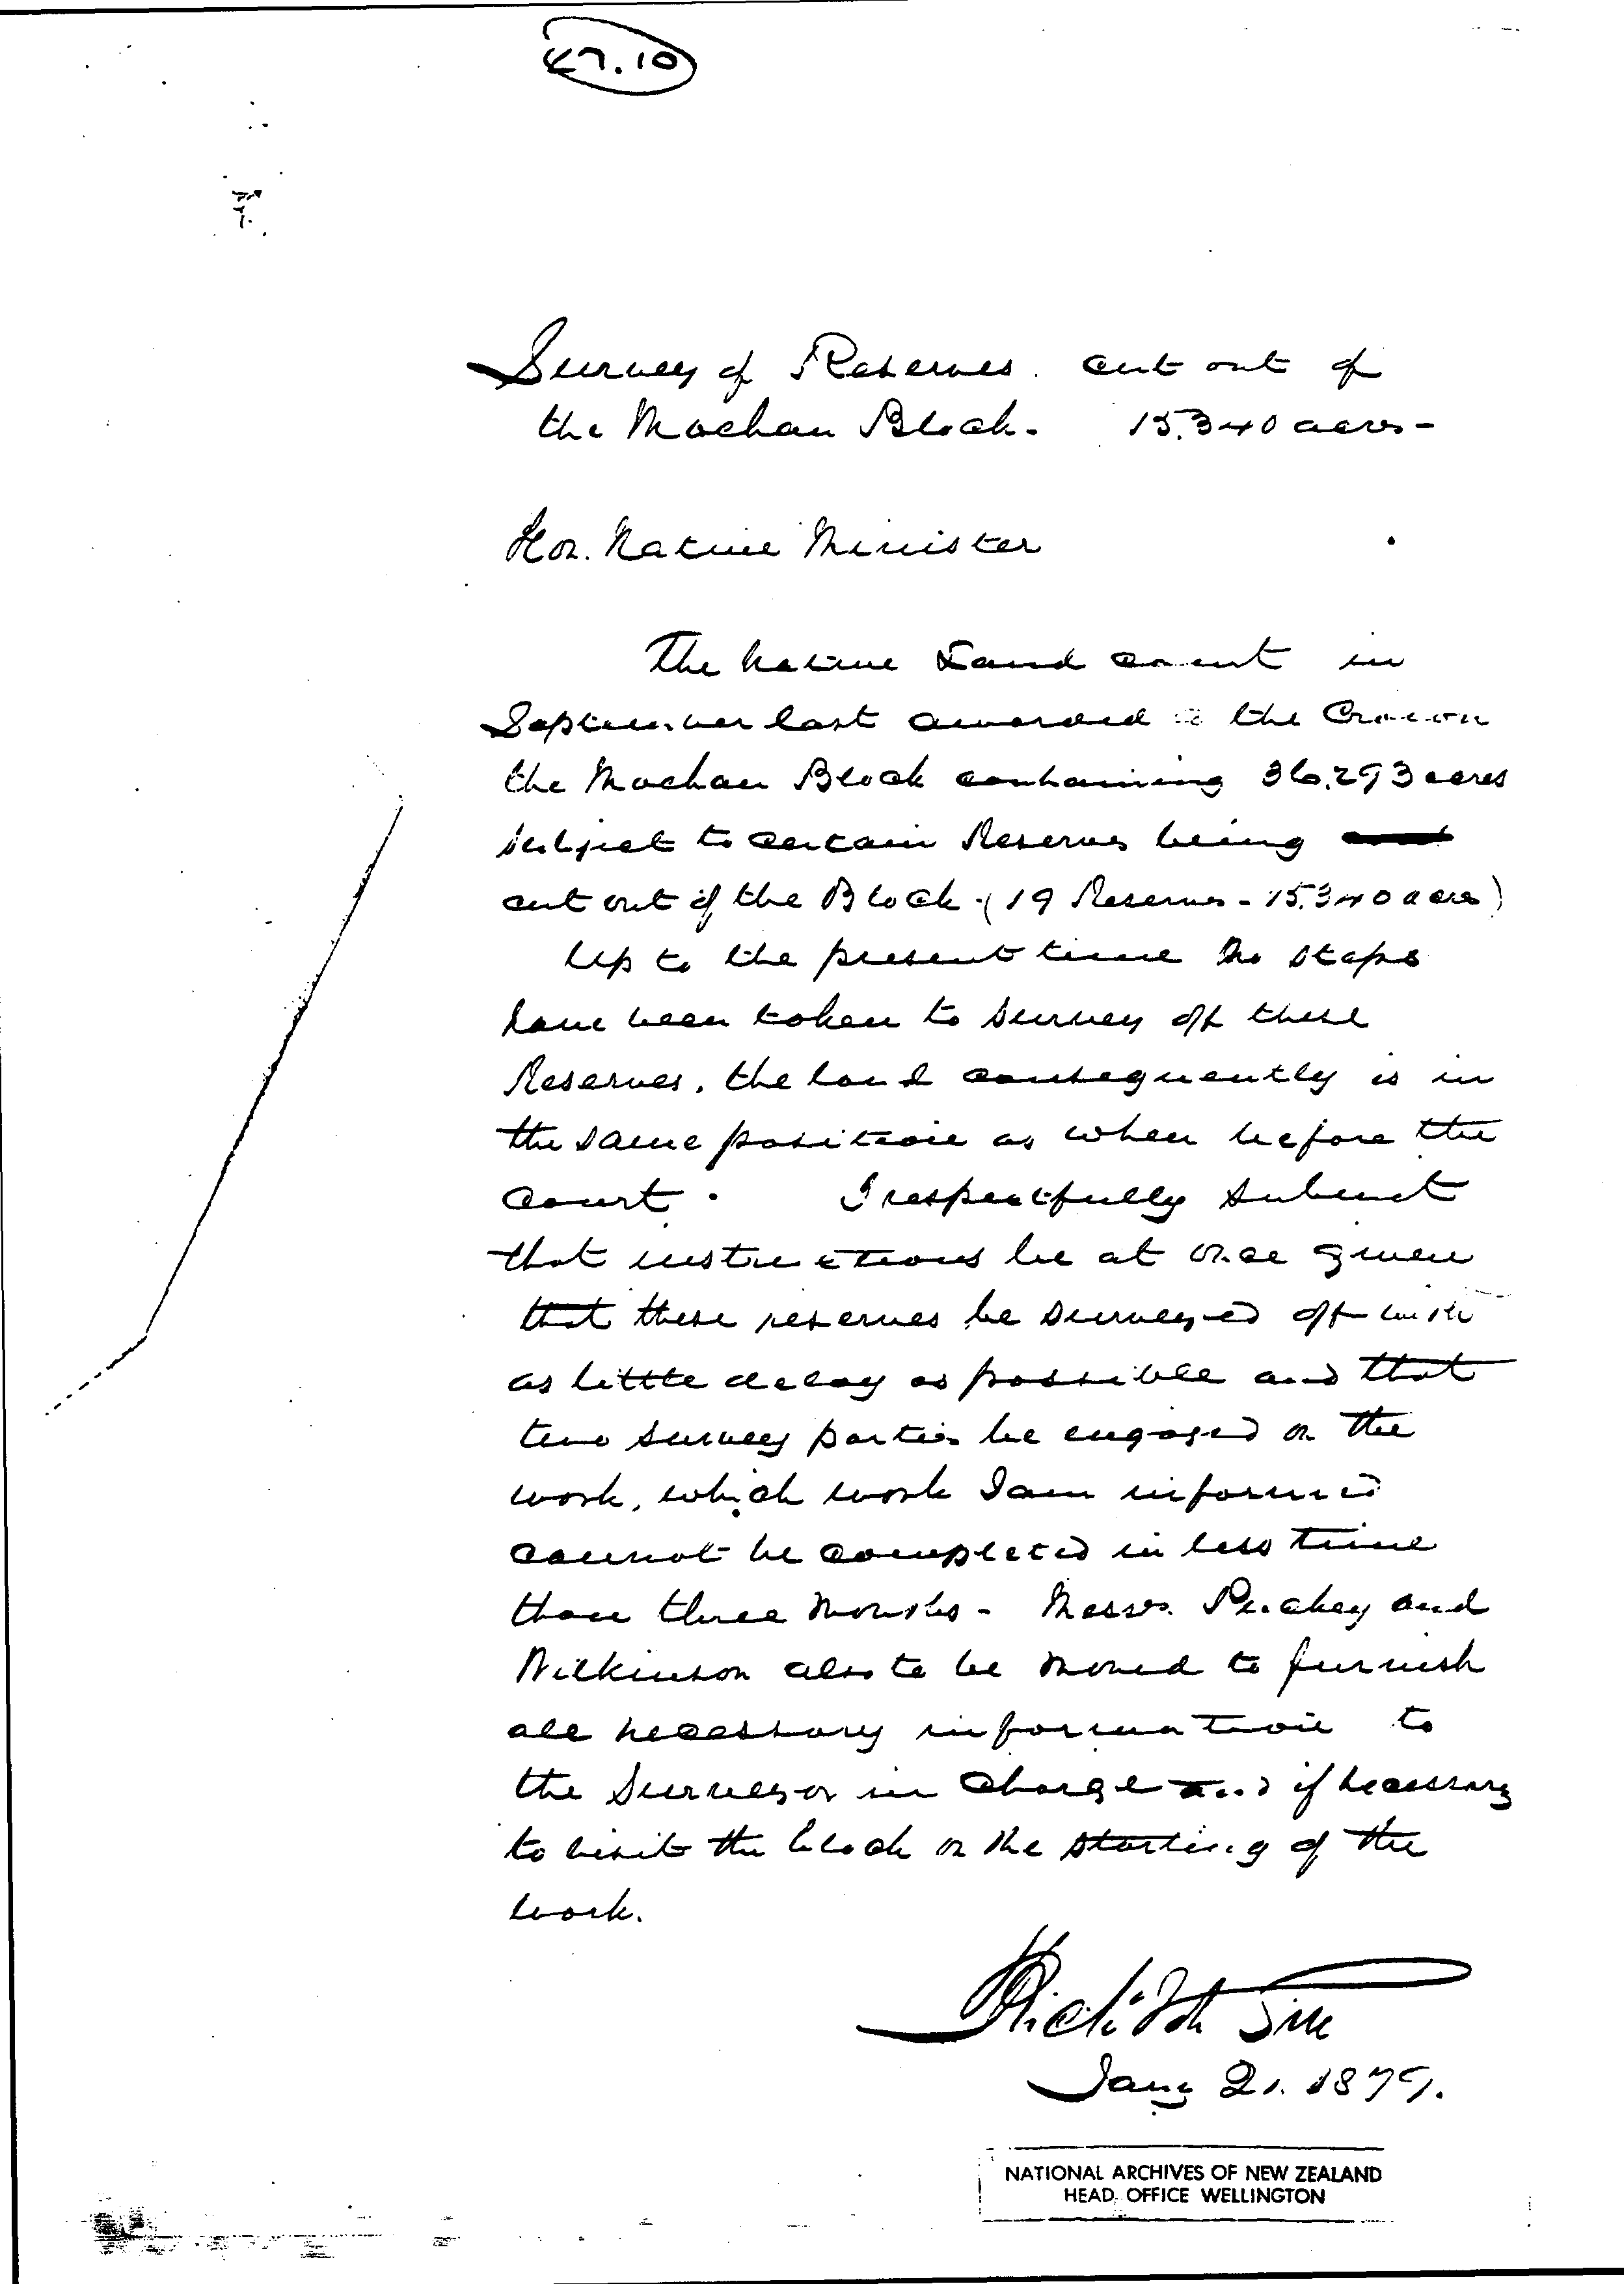 47.10
Survey of Reserves cut out of
the Moehau Block. 15.340 acres-
Hon. Native Minister
The Native Land Court in
September last awarded to the Crown
the Moehau Block containing 36.293 acres
subject to certain Reserves being
cut out of the Block (19 Reserves - 15.340 acres)
Up to the present time no steps
have been taken to survey off these
Reserves, the land consequently is in
the same position as when before the
Court. I respectfully submit
that instructions be at once given
that these reserves be surveyed off with
as little delay as possible and that
two survey parties be engaged on the
work, which work I am informed
cannot be completed in less time
than three months - Messrs. Puckey and
Wilkinson also to be moved to furnish
all necessary information to
the Surveyor in Charge and if necessary
to visit the block on the starting of the
work.
Jany 21. 1879.
NATIONAL ARCHIVES OF NEW ZEALAND
HEAD OFFICE WELLINGTON